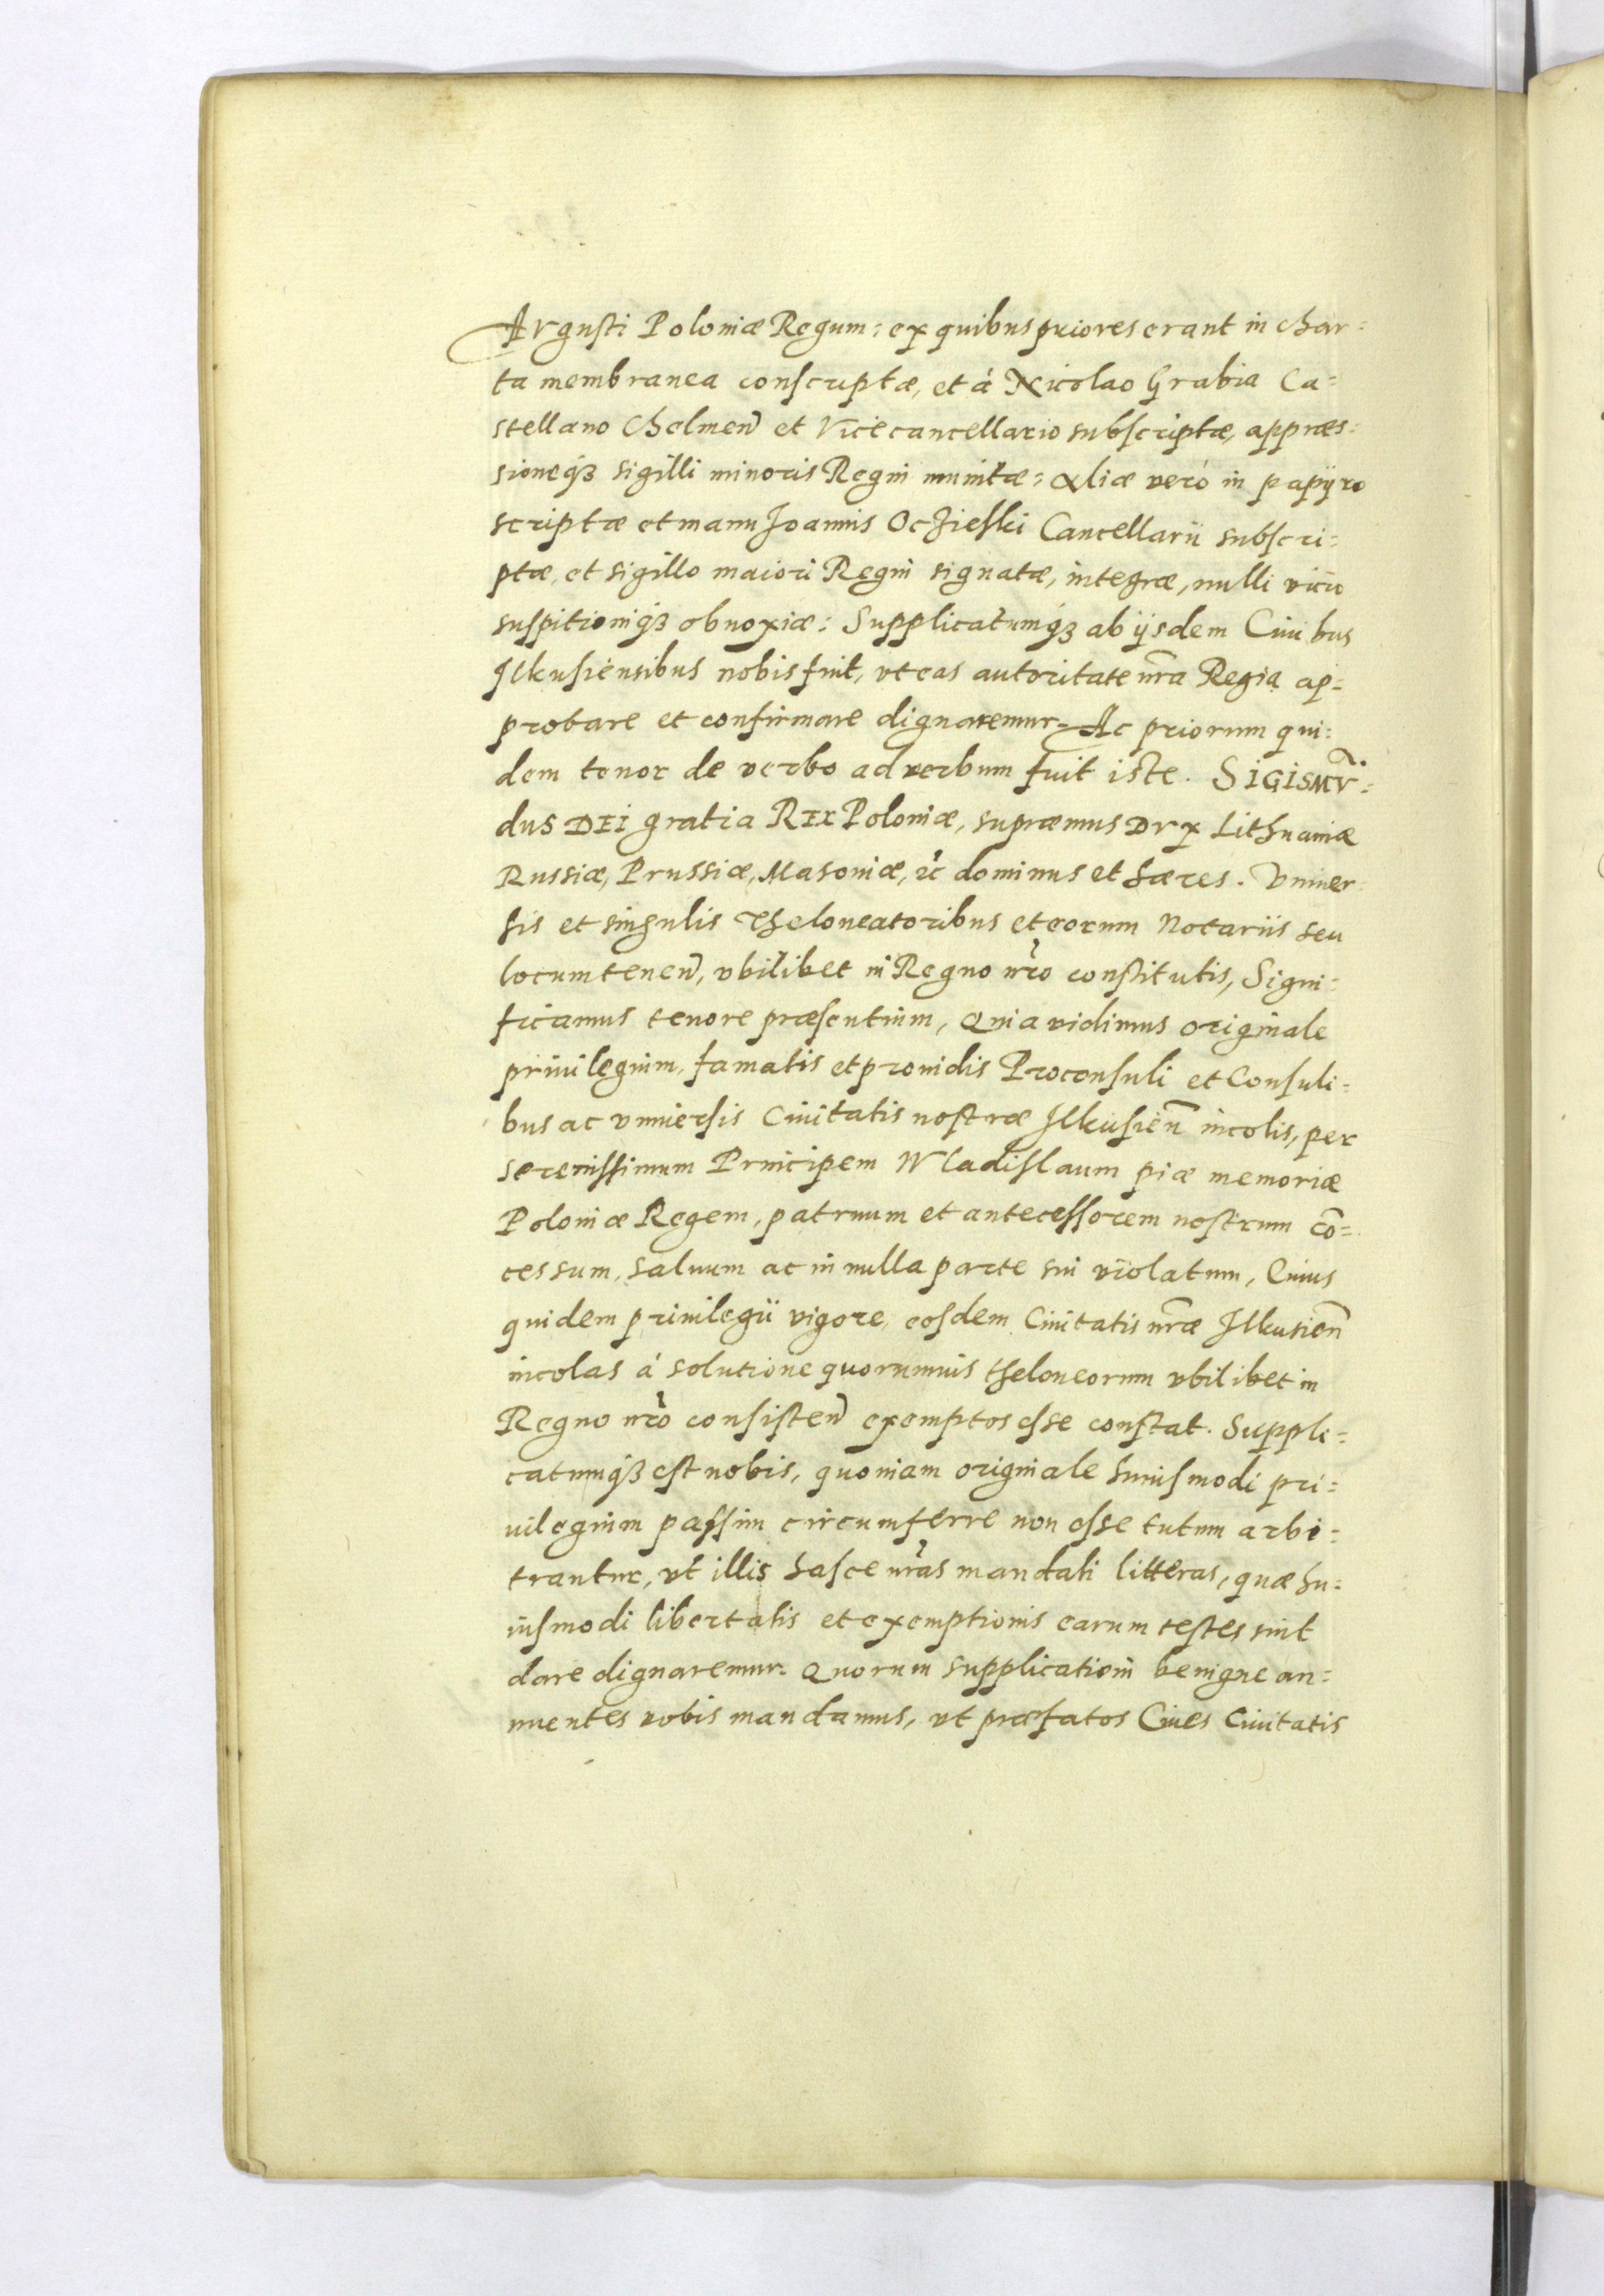 AVgusti Poloniæ Regum: ex quibus priores erant in char=
ta membranea conscriptæ, et á Nicolao Grabia Ca=
stellano Chelmen̄ et Vicecancellario subscriptæ, appræs=
sioneq́ꝫ sigilli minoris Regni munitæ: Aliæ veró in papÿro
scriptæ et manu Joannis Oczieski Cancellarii subscri=
ptæ, et sigillo maiori Regni signatæ, integræ, nulli vicio
suspitioniq́ꝫ obnoxiæ: Supplicatumq́ꝫ ab ijsdem Ciuibus
Ilkusiensibus nobis fuit, vt eas autoritate nr̄a Regia ap=
probare et confirmare dignaremur. Ac priorum qui=
dem tenor de verbo ad verbum fuit iste. SIGISMV̄=
dus DEI gratia REx Poloniæ, supræmus DVx Lithuaniæ
Russiæ, Prussiæ, Masoniæ, ꝛc̄ dominus et hæres. Vniuer=
sis et singulis Theloneatoribus et eorum Notariis seu
locumtenen̄, vbilibet in Regno nr̄o constitutis, Signi=
ficamus tenore præsentium, Quia vidimus originale
priuilegium, famatis et prouidis Proconsuli et Consuli=
bus ac vniuersis Ciuitatis nostræ Ilkusien̄ incolis, per
serenissimum Principem Wladislaum piæ memoriæ
Poloniæ Regem, patruum et antecessorem nostrum cō=
cessum, saluum ac in nulla parte sui violatum, Cuius
quidem priuilegii vigore, eosdem Ciuitatis nr̄æ Ilkusien̄
incolas á solutione quorumuis theloneorum vbilibet in
Regno nr̄o consisten̄ exemptos esse constat. Suppli=
catumq́ꝫ est nobis, quoniam originale huiusmodi pri=
uilegium passim circumferre non esse tutum arbi=
trantur, vt illis hasce nr̄as mandati litteras, quæ hu=
iusmodi libertatis et exemptionis earum testes sint
dare dignaremur. Quorum supplicationi benigne an=
nuentes vobis mandamus, vt præfatos Ciues Ciuitatis